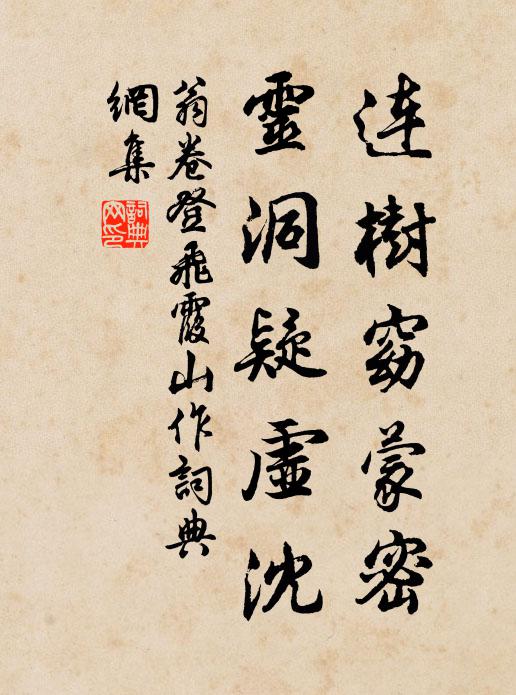 連樹窈蒙密
靈洞疑虛沈
翁卷登飛霞山作詞典
網集
詞典
网印